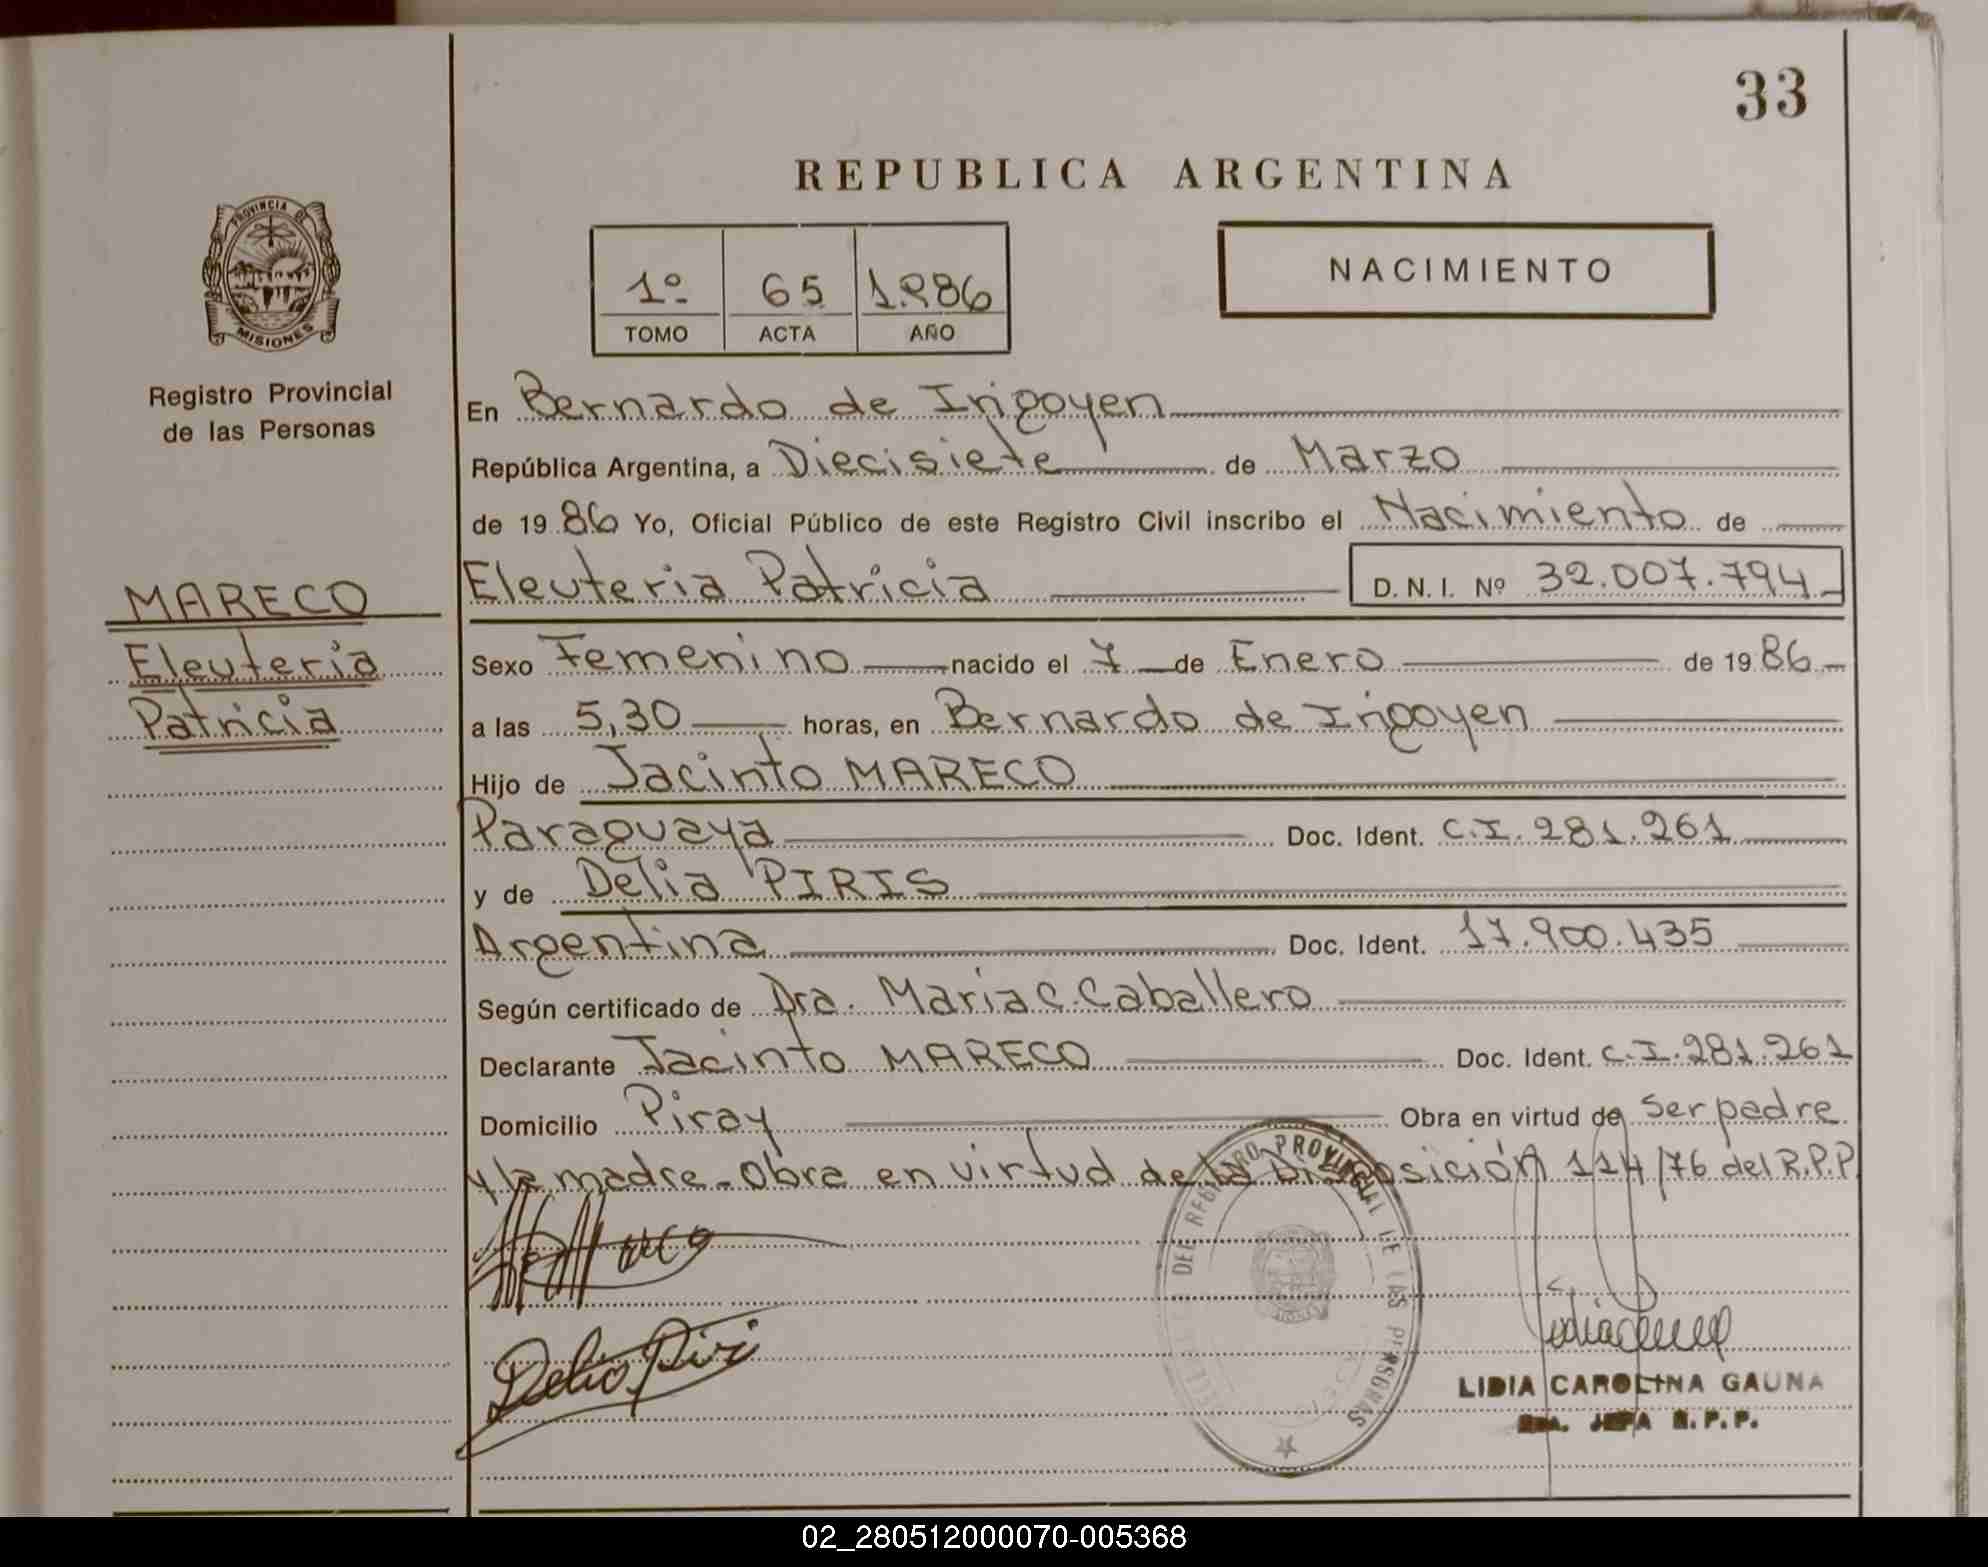 33
REPUBLICA ARGENTINA
PROVINCIA DE
MISIONES
Registro Provincial
de las Personas
1º 65 1.986
TOMO ACTA AÑO
NACIMIENTO
En Bernardo de Irigoyen
República Argentina, a Diecisiete de Marzo
de 1986 Yo, Oficial Público de este Registro Civil inscribo el Nacimiento de
MARECO
Eleuteria
Patricia
Eleuteria Patricia D.N.I. Nº 32.007.794
Sexo Femenino nacido el 7 de Enero de 1986
a las 5,30 horas, en Bernardo de Irigoyen
Hijo de Jacinto MARECO
Paraguaya Doc. Ident. C.I. 281.261
y de Delia PIRIS
Argentina Doc. Ident. 17.900.435
Según certificado de Dra. Maria C. Caballero
Declarante Jacinto MARECO Doc. Ident. C.I. 281.261
Domicilio Piray Obra en virtud de Ser padre
y la madre - Obra en virtud de la Disposición 114/76 del R.P.P.
DEL REGISTRO PROVINCIAL DE LAS PERSONAS
Delia Piris
LIDIA CAROLINA GAUNA
JEFA R.P.P.
02_280512000070-005368